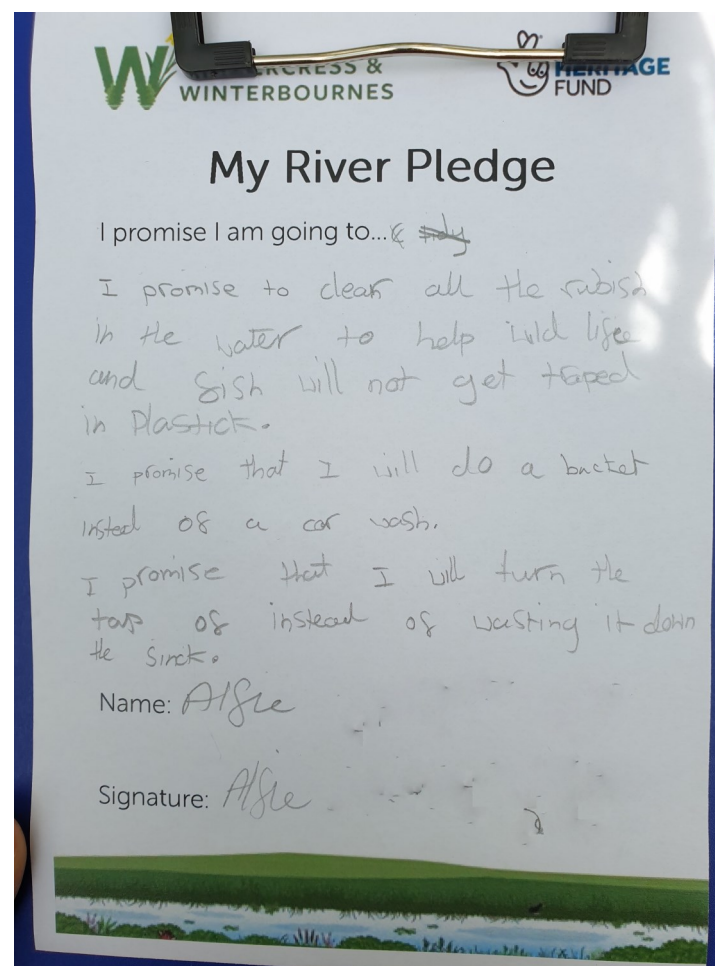 WATERCRESS &
WINTERBOURNES
HERITAGE
FUND
My River Pledge
I promise I am going to...
I promise to clean all the rubish
in the water to help wild lifee
and fish will not get traped
in Plastick.
I promise that I will do a bucket
insted of a car wash.
I promise that I will turn the
tap of instead of wasting it down
the sinck.
Name: Alfie
Signature: Alfie